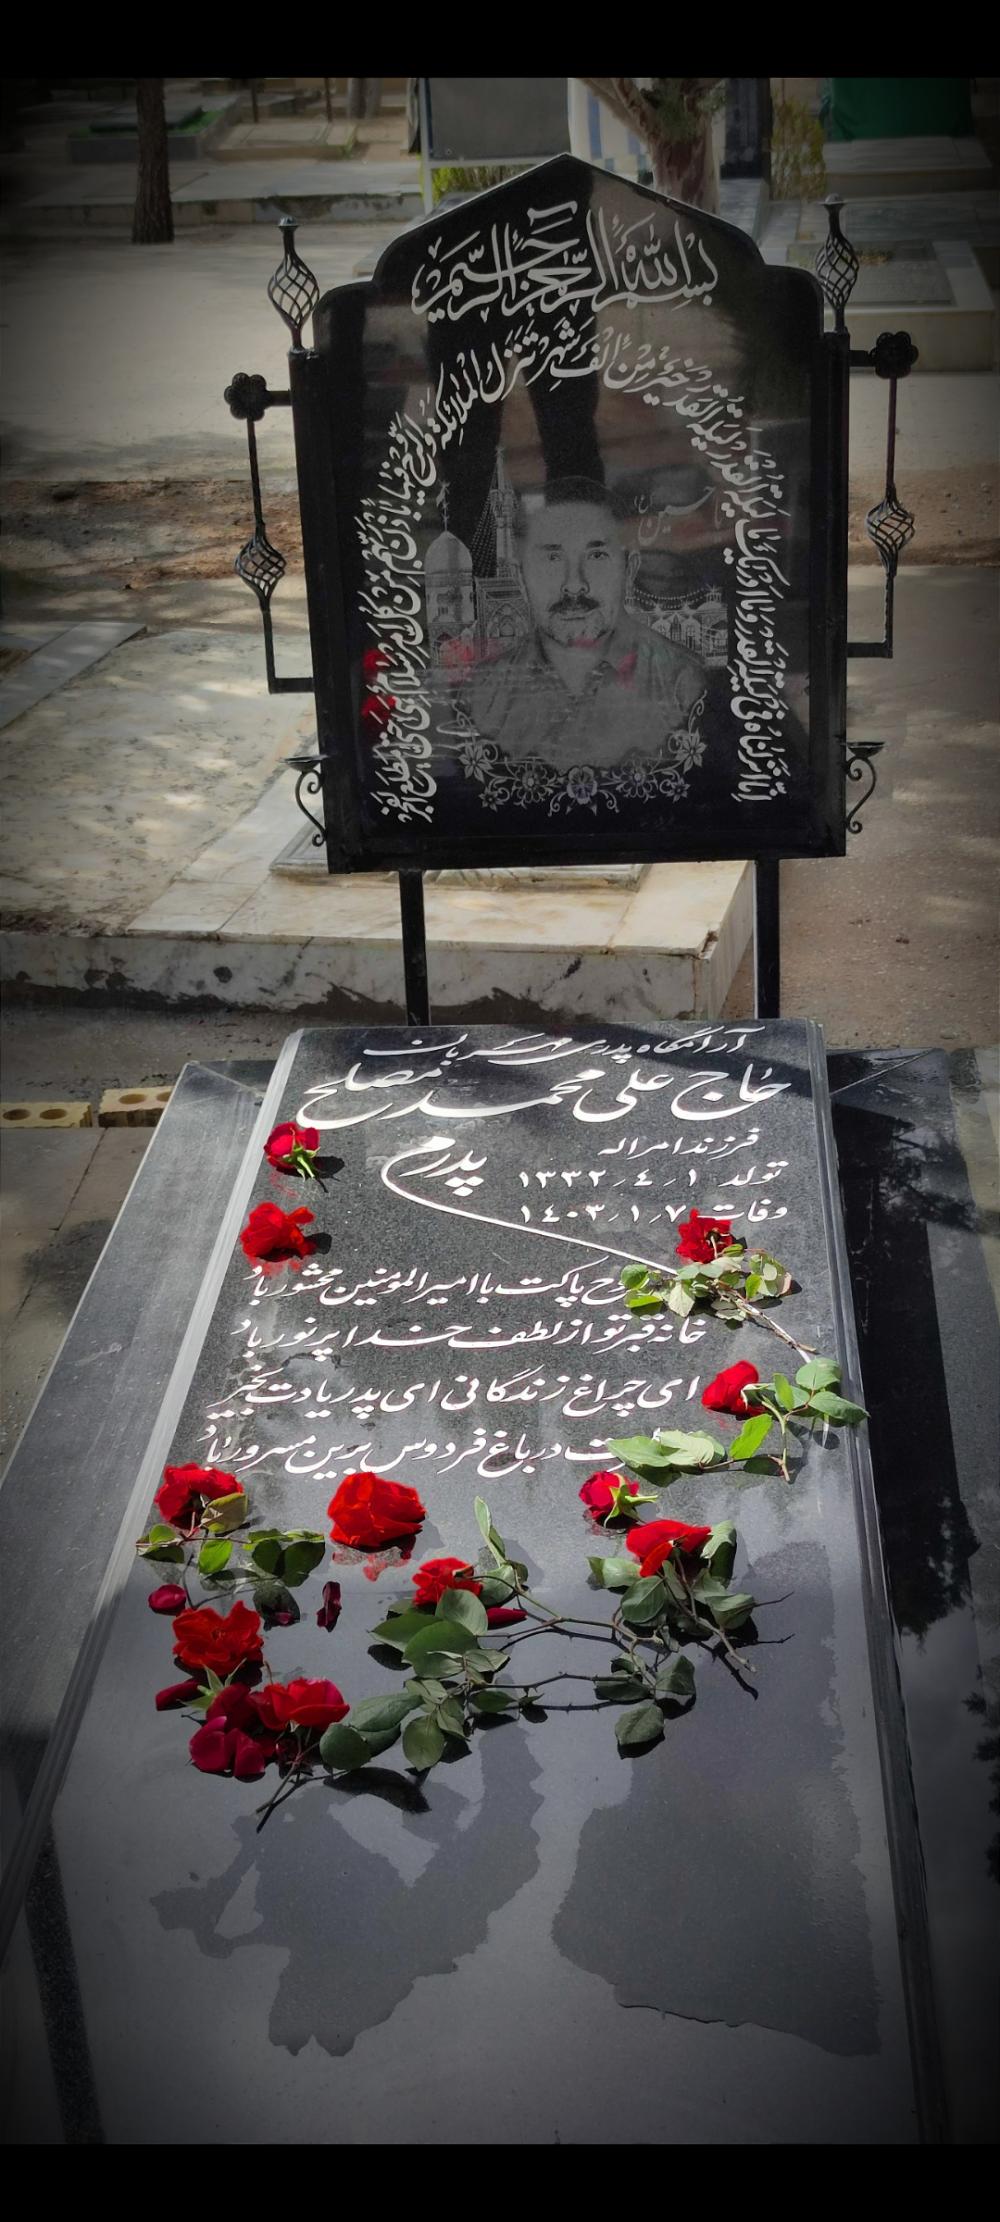 بسم الله الرحمن الرحیم
إِنَّا أَنْزَلْنَاهُ فِي لَيْلَةِ الْقَدْرِ وَمَا أَدْرَاكَ مَا لَيْلَةُ الْقَدْرِ لَيْلَةُ الْقَدْرِ خَيْرٌ مِنْ أَلْفِ شَهْرٍ تَنَزَّلُ الْمَلَائِكَةُ وَالرُّوحُ فِيهَا بِإِذْنِ رَبِّهِمْ مِنْ كُلِّ أَمْرٍ سَلَامٌ هِيَ حَتَّى مَطْلَعِ الْفَجْرِ
یا حسین
آرامگاه پدری مهربان
حاج علی محمد مصلح
فرزند امراله
تولد ۱٫۴٫۱۳۳۲
وفات ۷٫۱٫۱۴۰۳
پدرم
روح پاکت با امیرالمؤمنین محشور باد
خانه قبر تو از لطف خدا پرنور باد
ای چراغ زندگانی ای پدر یادت بخیر
در باغ فردوس برین مسرور باد